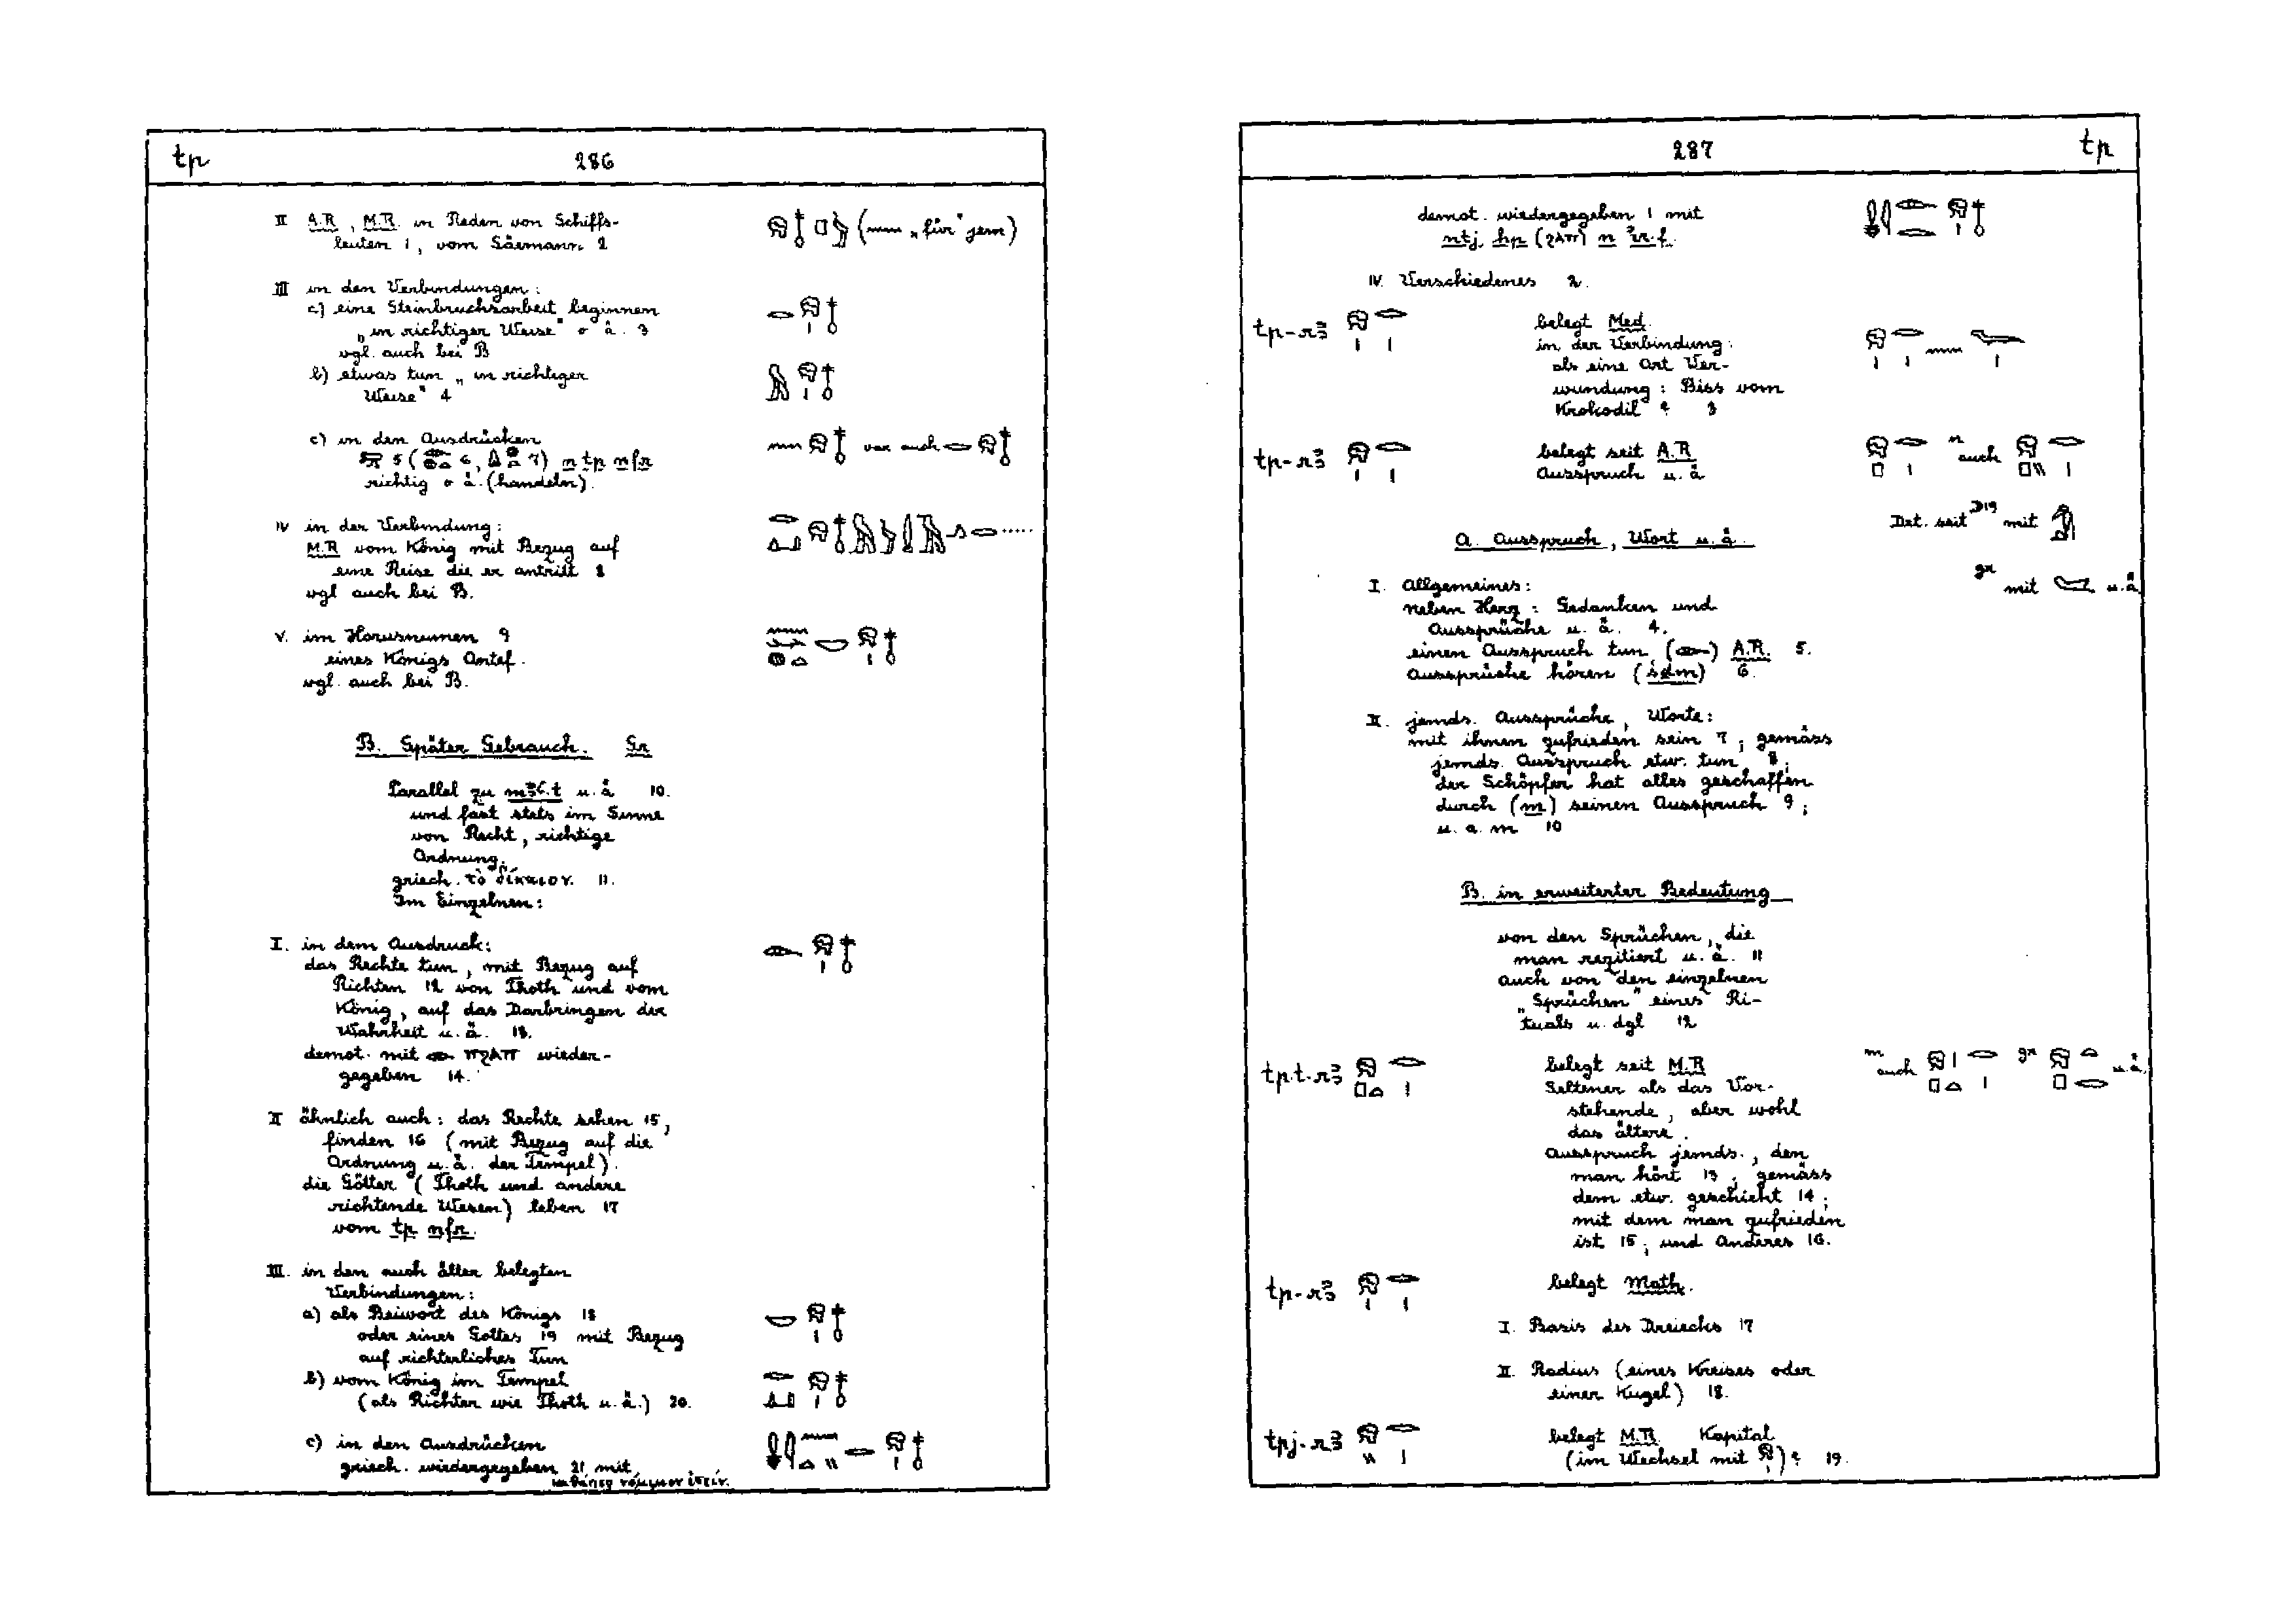 tp 286
II A.R., M.R. in Reden von Schiffs-
leuten 1, vom Säemann 2
(„für" jem)
III in den Verbindungen:
a) eine Steinbruchsarbeit beginnen
„in richtiger Weise" o ä. 3
vgl. auch bei B
b) etwas tun „in richtiger
Weise" 4
c) in den Ausdrücken
5 ( 6, 7) n tp nfr
richtig o ä. (handeln).
var auch
IV in der Verbindung:
M.R vom König mit Bezug auf
eine Reise die er antritt 8
vgl auch bei B.
V. im Horusnamen 9
eines Königs Antef.
vgl. auch bei B.
B. Später Gebrauch. Gr
Parallel zu mꜣꜥ.t u.ä 10.
und fast stets im Sinne
von Recht, richtige
Ordnung.
griech. τὸ δίκαιον. 11.
Im Einzelnen:
I. in dem Ausdruck:
das Rechte tun, mit Bezug auf
Richten 12 von Thoth und vom
König, auf das Darbringen der
Wahrheit u.ä. 13.
demot. mit wieder-
gegeben 14.
II ähnlich auch: das Rechte sehen 15,
finden 16 (mit Bezug auf die
Ordnung u.ä. der Tempel).
die Götter (Thoth und andere
richtende Wesen) leben 17
vom tp nfr.
III. in den auch älter belegten
Verbindungen:
a) als Beiwort des Königs 18
oder eines Gottes 19 mit Bezug
auf richterliches Tun
b) vom König im Tempel
(als Richter wie Thoth u.ä.) 20.
c) in den Ausdrücken
griech. wiedergegeben 21 mit
καθάπερ νόμιμον ἐστίν.
287 tp
demot. wiedergegeben 1 mit
ntj hp (ϩⲁⲡ) n ꜣr.f.
IV. Verschiedenes 2.
tp-rꜣ belegt Med.
in der Verbindung:
als eine Art Ver-
wundung: Biss vom
Krokodil ? 3
tp-rꜣ belegt seit A.R
Ausspruch u.ä
n auch
Det. seit D19 mit
gr mit u.ä
A. Ausspruch, Wort u.ä.
I. Allgemeines:
neben Herz: Gedanken und
Aussprüche u. ä. 4.
einen Ausspruch tun ( ) A.R. 5.
Aussprüche hören (śdm) 6.
II. jemds. Aussprüche, Worte:
mit ihnen zufrieden sein 7; gemäss
jemds. Ausspruch etw. tun 8;
der Schöpfer hat alles geschaffen
durch (m) seinen Ausspruch 9;
u. a. m 10
B. in erweiterter Bedeutung
von den Sprüchen, die
man rezitiert u.ä. 11
auch von den einzelnen
„Sprüchen" eines Ri-
tuals u. dgl 12
tp.t-rꜣ belegt seit M.R
Seltener als das Vor-
stehende, aber wohl
das ältere.
Ausspruch jemds., den
man hört 13; gemäss
dem etw. geschieht 14;
mit dem man zufrieden
ist 15; und Anderes 16.
n auch gr u.ä.
tp-rꜣ belegt Math.
I. Basis des Dreiecks 17
II. Radius (eines Kreises oder
einer Kugel) 18.
tpj-rꜣ belegt M.R. Kapital
(im Wechsel mit ) ? 19.